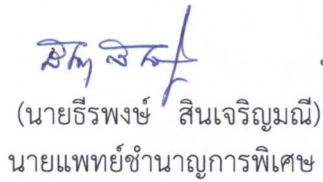 (นายธีรพงษ์ สินเจริญมณี)
นายแพทย์ชำนาญการพิเศษ